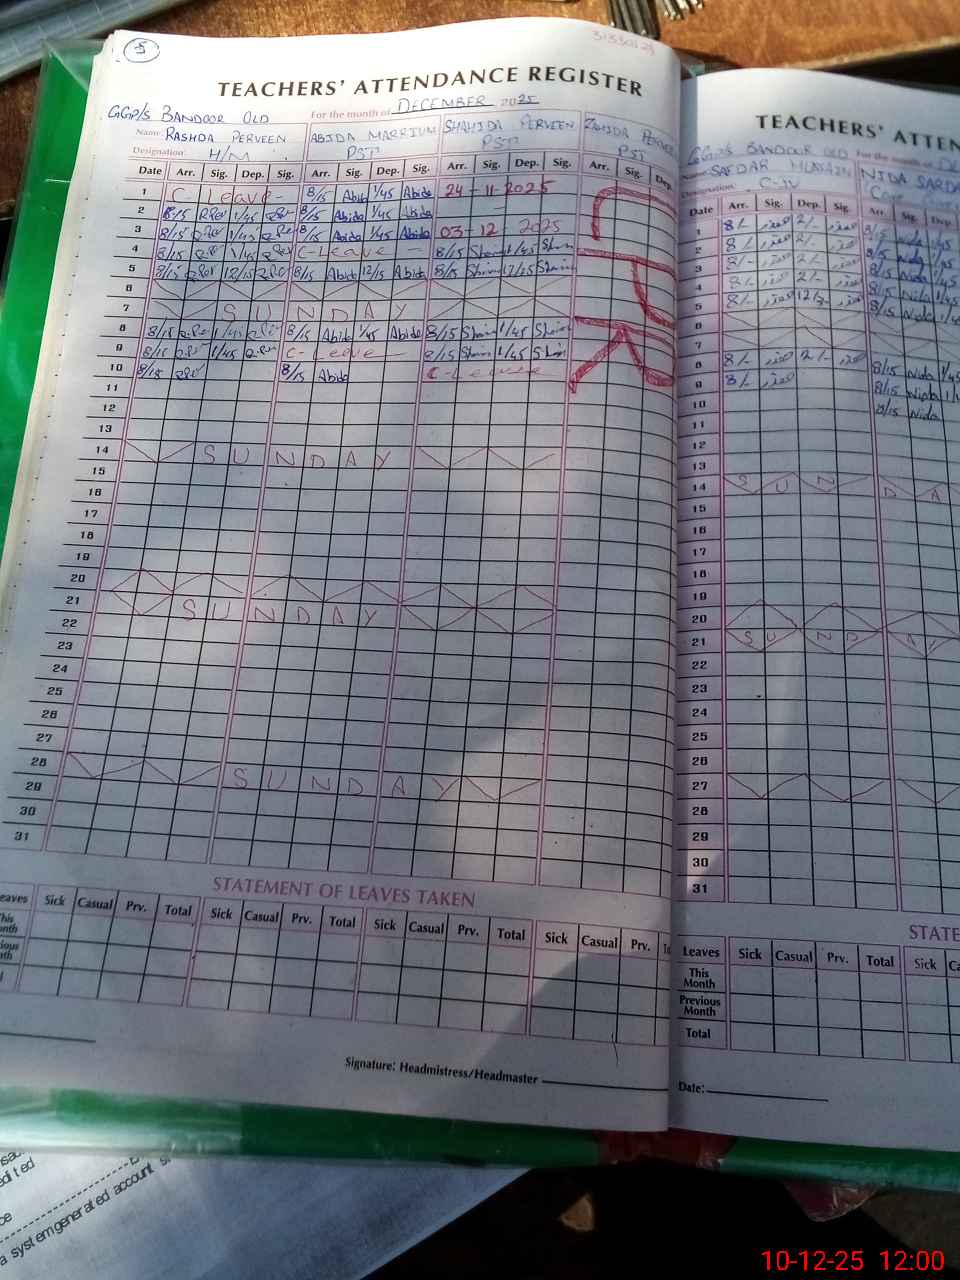 5
313301 29
TEACHERS' ATTENDANCE REGISTER
GGP/S BANDOOR OLD For the month of DECEMBER 2025
Name: RASHDA PERVEEN ABIDA MARRIUM SHAHIDA PERVEEN ZAHIDA
Designation: H/M PST PST PST
Date Arr. Sig. Dep. Sig. Arr. Sig. Dep. Sig. Arr. Sig. Dep. Sig. Arr. Sig. Dep.
1 C. Leave 8/15 Abida 1/45 Abida 24-11-2025
2 8/15 1/45 8/15 Abida 1/45 Abida
3 8/15 1/45 8/15 Abida 1/45 Abida 03-12-2025
4 8/15 1/45 C-Leave 8/15 1/45
5 8/15 12/15 8/15 Abida 12/15 Abida 8/15 12/25
6
7 SUNDAY
8 8/15 1/45 8/15 Abida 1/45 Abida 8/15 1/45
9 8/15 1/45 C-Leave 8/15 1/45
10 8/15 8/15 Abida C-Leave
11
12
13
14 SUNDAY
15
16
17
18
19
20
21 SUNDAY
22
23
24
25
26
27
28
29 SUNDAY
30
31
STATEMENT OF LEAVES TAKEN
eaves Sick Casual Prv. Total Sick Casual Prv. Total Sick Casual Prv. Total Sick Casual Prv.
This
onth
ious
nth
Signature: Headmistress/Headmaster
TEACHERS' ATTEN
GGP/S BANDOOR OLD For the month
Name: SAFDAR HUSSAIN NIDA SARDA
Designation: C-IV
Date Arr. Sig. Dep. Sig. Arr. Sig. Dep.
1 8/- صفدر 2/- صفدر 8/15 Nida 1/45
2 8/- صفدر 2/- صفدر 8/15 Nida 1/45
3 8/- صفدر 2/- صفدر 8/15 Nida
4 8/- صفدر 2/- صفدر 8/15 Nida 1/45
5 8/- صفدر صفدر 8/15 Nida
6
7
8 8/- صفدر 2/- صفدر 8/15 Nida 1/45
9 8/- صفدر 8/15 Nida
10 8/15 Nida
11
12
13
14 SUNDA
15
16
17
18
19
20
21 SUNDAY
22
23
24
25
26
27
28
29
30
31
STATE
Leaves Sick Casual Prv. Total Sick Ca
This
Month
Previous
Month
Total
Date:
edited
a system generated account s
10-12-25 12:00